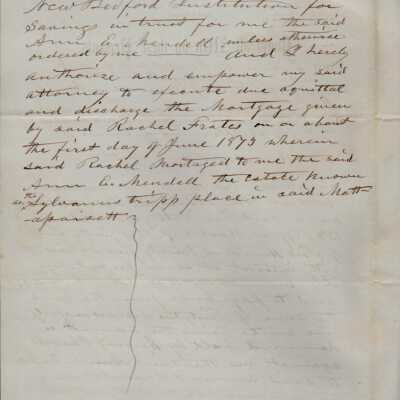 New Bedford Institution for
Savings in trust for me the said
Ann E. Mendell unless otherwise
ordered by me And I hereby
authorize and empower my said
attorney to execute due aquittal
and discharge the Mortgage given
by said Rachel Frates on or about
the first day of June 1873 wherein
said Rachel Mortgaged to me the said
Ann E. Mendell the estate known
as the Sylvanus Tripp place in said Matt-
apoisett